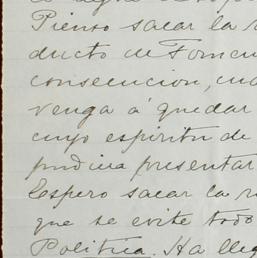 Pienso sacar la
ducto de Fomen
consecucion, 
venga á quedar
cuyo espíritu de
pudiera presentar
Espero sacar la
que se evite todo
Politica. Ha lleg